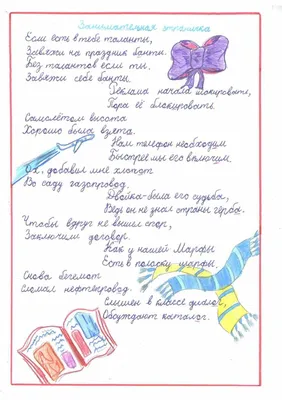 Занимательная страничка
Если есть в тебе таланты,
Завяжи на праздник банты.
Без талантов если ты.
Завяжи себе банты.
Реклама начала шокировать,
Пора её блокировать.
Самолётом высота
Хорошо была взята.
Нам телефон необходим
Быстрее мы его включим.
Ох, добавил мне хлопот
Во саду газопровод.
Двойка-была его судьба,
Ведь он не знал страны герба.
Чтобы вдруг не вышел спор,
Заключим договор.
Как у нашей Марфы
Есть в полоску шарфы.
Снова бегемот
Сломал нефтепровод.
Слышен в классе диалог,
Обсуждают каталог.